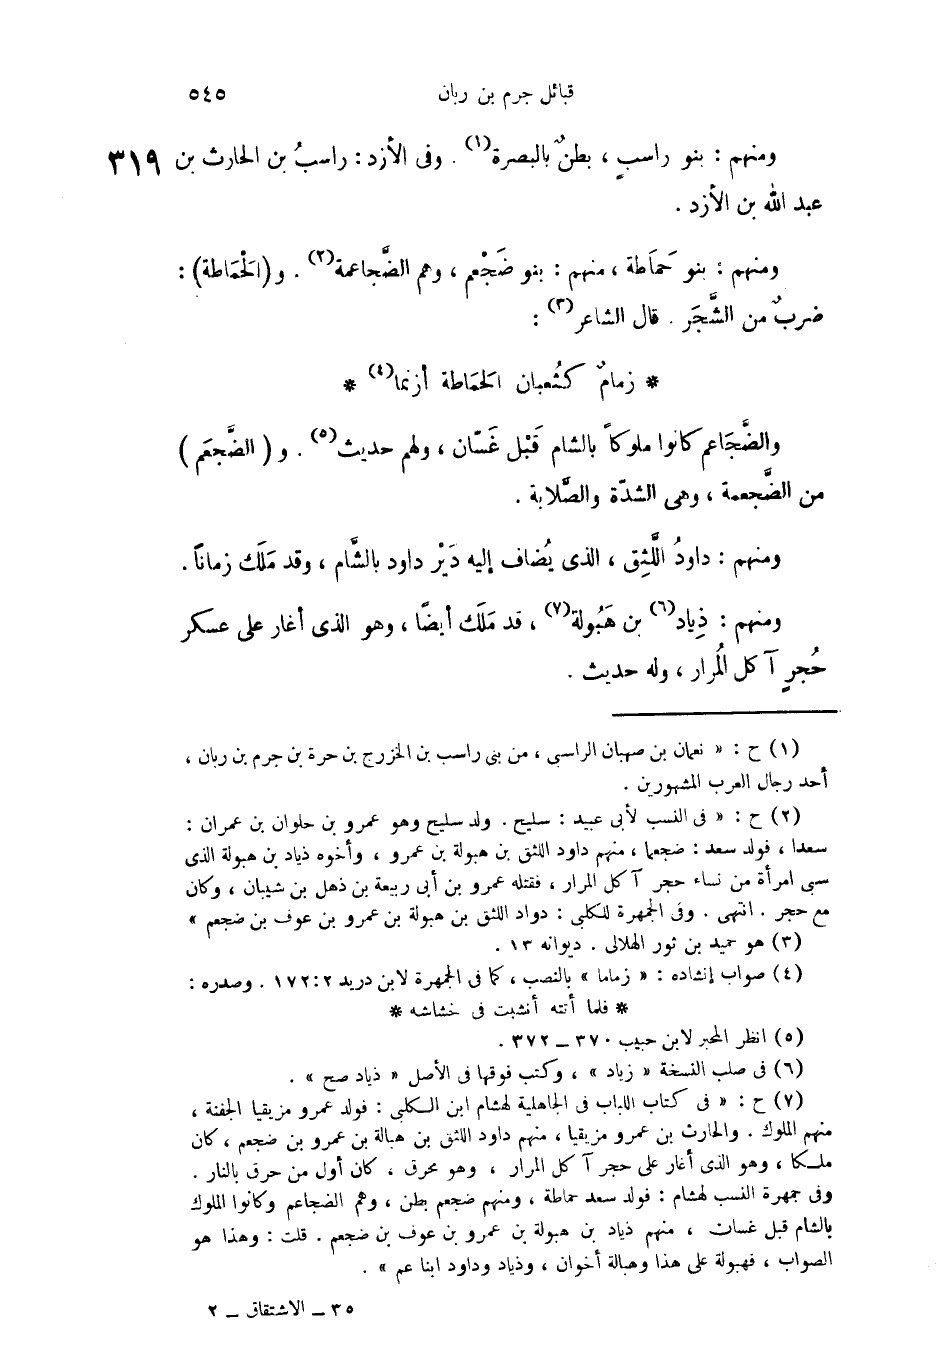 قبائل جرم بن ربان ٥٤٥
ومنهم : بنو راسبٍ ، بطنٌ بالبصرة(١) . وفى الأزد : راسبُ بن الحارث بن ٣١٩
عبد الله بن الأزد .
ومنهم : بنو حَمَاطة ، منهم : بنو ضَجْعم ، وهم الضَّجاعمة(٢) . و (الحَمَاطة) :
ضربٌ من الشَّجَر . قال الشاعر(٣) :
* زمامٌ كثُعبان الحَمَاطة أزنما(٤) *
والضَّجَاعم كانوا ملوكاً بالشام قَبْل غَسّان ، ولهم حديث(٥) . و ( الضَّجعَم )
من الضَّجعمة ، وهى الشدّة والصَّلابة .
ومنهم : داودُ اللَّثِق ، الذى يُضاف إليه دَيْر داود بالشَّام ، وقد مَلَك زماناً .
ومنهم : ذِياد(٦) بن هَبُولة(٧) ، قد مَلَك أيضًا ، وهو الذى أغار على عسكر
حُجرٍ آكل المُرار ، وله حديث .
(١) ح : « نعمان بن صهبان الراسبى ، من بنى راسب بن الخزرج بن حرة بن جرم بن ربان ،
أحد رجال العرب المشهورين .
(٢) ح : « فى النسب لأبى عبيد : سليح . ولد سليح وهو عمرو بن حلوان بن عمران :
سعدا ، فولد سعد : ضجعما ، منهم داود اللثق بن هبولة بن عمرو ، وأخوه ذياد بن هبولة الذى
سبى امرأة من نساء حجر آكل المرار ، فقتله عمرو بن أبى ربيعة بن ذهل بن شيبان ، وكان
مع حجر . انتهى . وفى الجمهرة للكلبى : دواد اللثق بن هبولة بن عمرو بن عوف بن ضجعم »
(٣) هو حميد بن ثور الهلالى . ديوانه ١٣ .
(٤) صواب إنشاده : « زماما » بالنصب ، كما فى الجمهرة لابن دريد ٢ : ١٧٢ . وصدره :
* فلما أتته أنشبت فى خشاشه *
(٥) انظر المحبر لابن حبيب ٣٧٠ ــ ٣٧٢ .
(٦) فى صلب النسخة « زياد » ، وكتب فوقها فى الأصل « ذياد صح » .
(٧) ح : « فى كتاب اللباب فى الجاهلية لهشام ابن الكلبى : فولد عمرو مزيقيا الجفنة ،
منهم الملوك . والحارث بن عمرو مزيقيا ، منهم داود اللثق بن هبالة بن عمرو بن ضجعم ، كان
ملكا ، وهو الذى أغار على حجر آكل المرار ، وهو محرق ، كان أول من حرق بالنار .
وفى جمهرة النسب لهشام : فولد سعد حماطة ، ومنهم ضجعم بطن ، وهم الضجاعم وكانوا الملوك
بالشام قبل غسان ، منهم ذياد بن هبولة بن عمرو بن عوف بن ضجعم . قلت : وهذا هو
الصواب ، فهبولة على هذا وهبالة أخوان ، وذياد وداود ابنا عم » .
٣٥ ــ الاشتقاق ــ ٢